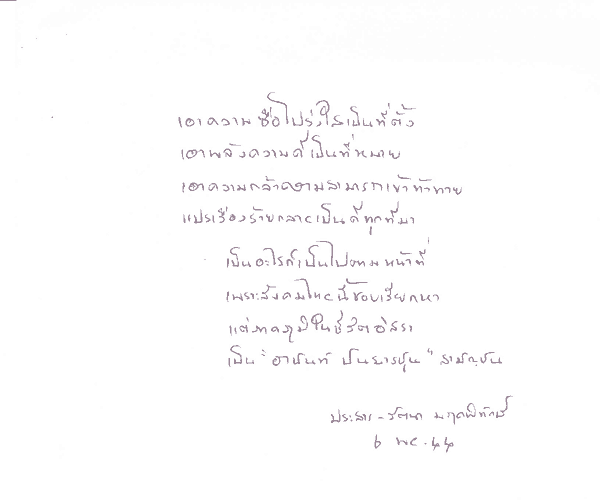 เอาความซื่อโปร่งใสเป็นที่ตั้ง
เอาพลังความดีเป็นที่หมาย
เอาความกล้าความสามารถเข้าท้าทาย
แปรเรื่องร้ายกลายเป็นดีทุกที่มา
เป็นอะไรก็เป็นไปตามหน้าที่
เพราะสังคมไทยนี้ชอบเรียกหา
แต่ภาคภูมิในชีวิตอิสรา
เป็น "อานันท์ ปันยารชุน" สามัญชน
ประสาร - รัตนา มฤคพิทักษ์
๖ พย. ๔๔